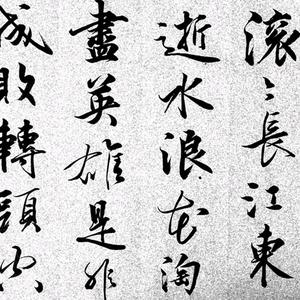 滾〻長江東
逝水浪花淘
盡英雄是非
成敗轉頭空